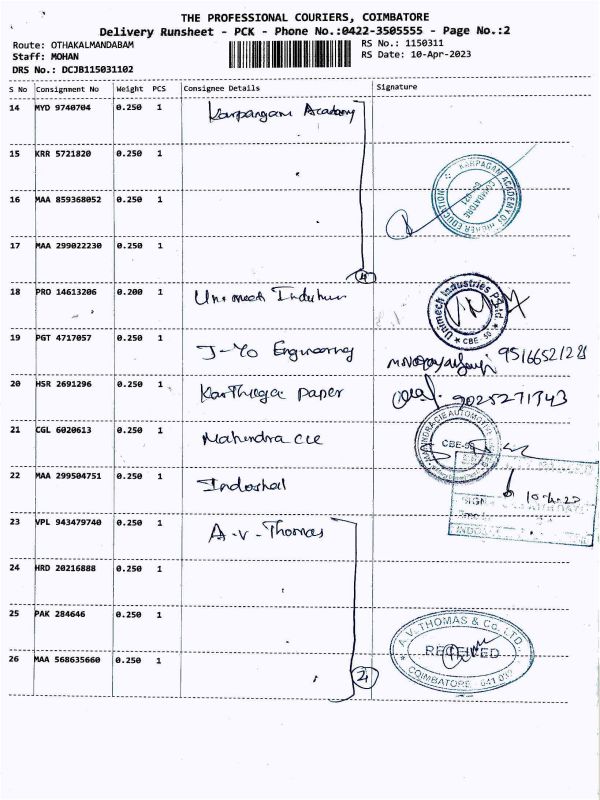 THE PROFESSIONAL COURIERS, COIMBATORE
Delivery Runsheet - PCK - Phone No.:0422-3505555 - Page No.:2
Route: OTHAKALMANDABAM
RS No.: 1150311
Staff: MOHAN
RS Date: 10-Apr-2023
DRS No.: DCJB115031102
S No Consignment No Weight PCS Consignee Details Signature
14 MYD 9740704 0.250 1 Karpangam Academy
15 KRR 5721820 0.250 1
KARPAGAM ACADEMY OF HIGHER EDUCATION
COIMBATORE
16 MAA 859368052 0.250 1
17 MAA 299022230 0.250 1
4
18 PRO 14613206 0.200 1
Unimech Industries P Ltd.
CBE - 50
19 PGT 4717057 0.250 1 J-Yo Engineering
20 HSR 2691296 0.250 1 Karthiga Paper 9025271343
21 CGL 6020613 0.250 1 Mahendra CIE
CBE-50
22 MAA 299504751 0.250 1 Indoshal
SIGN
23 VPL 943479740 0.250 1 A.V. Thomas
24 HRD 20216888 0.250 1
25 PAK 284646 0.250 1
A.V. THOMAS & Co. LTD.,
RECEIVED
COIMBATORE - 641 032
26 MAA 568635660 0.250 1
4